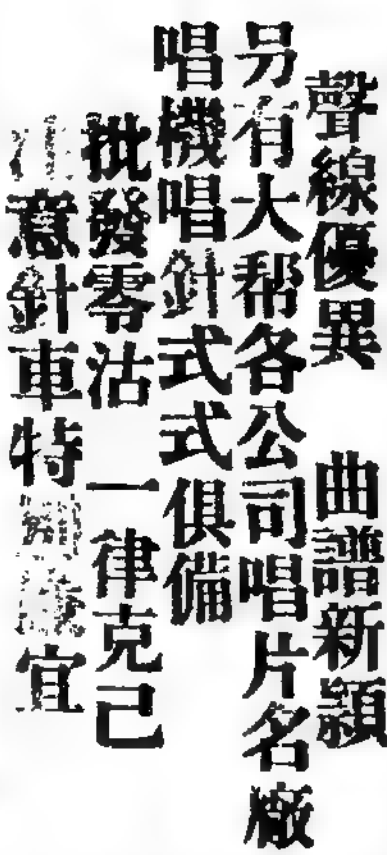 聲線優異 曲譜新穎
另有大帮各公司唱片名廠
唱機唱針式式俱備
批發零沽 一律克己
意針車特宜